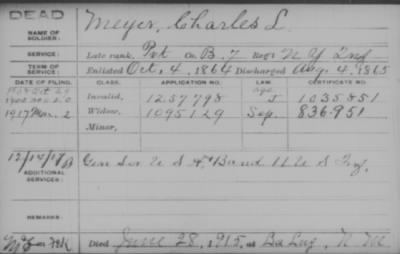 DEAD
NAME OF SOLDIER: Meyer, Charles L.
SERVICE: Late rank, Pvt Co. B. 7 Reg't N Y Inf
TERM OF SERVICE: Enlisted Oct. 4, 1864 Discharged Aug. 4, 1865
DATE OF FILING. CLASS. APPLICATION NO. LAW. CERTIFICATE NO.
Invalid, 1237798 1035851
1917 Mar. 2 Widow, 1095129 Sep. 836.951
Minor,
12/14/17
ADDITIONAL SERVICES: Gen Ser U S A, Band 11 U S Inf.
REMARKS:
Died June 28, 1915, at N. M.